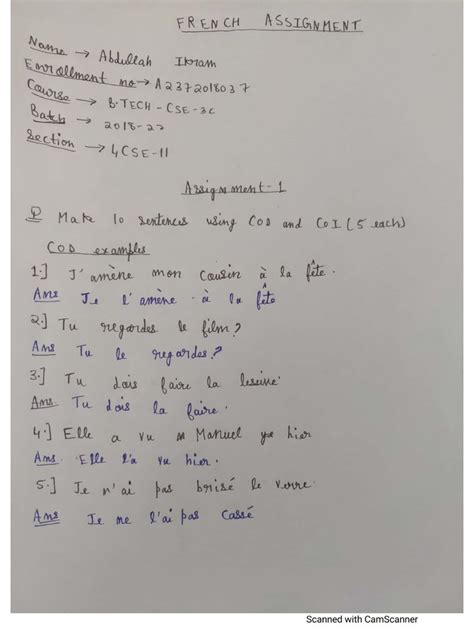 FRENCH ASSIGNMENT
Name → Abdullah Ikram
Enrollment no → A2372018037
Course → B.TECH - CSE - 3C
Batch → 2018-22
Section → 4CSE-11
Assignment-1
Q Make 10 sentences using COD and COI (5 each)
COD examples
1.] J'amène mon cousin à la fête.
Ans Je l'amène à la fête
2.] Tu regardes le film?
Ans Tu le regardes?
3.] Tu dois faire la lessine.
Ans. Tu dois la faire.
4.] Elle a vu Manuel hier
Ans. Elle l'a vu hier.
5.] Je n'ai pas brisé le verre.
Ans Je ne l'ai pas cassé
Scanned with CamScanner